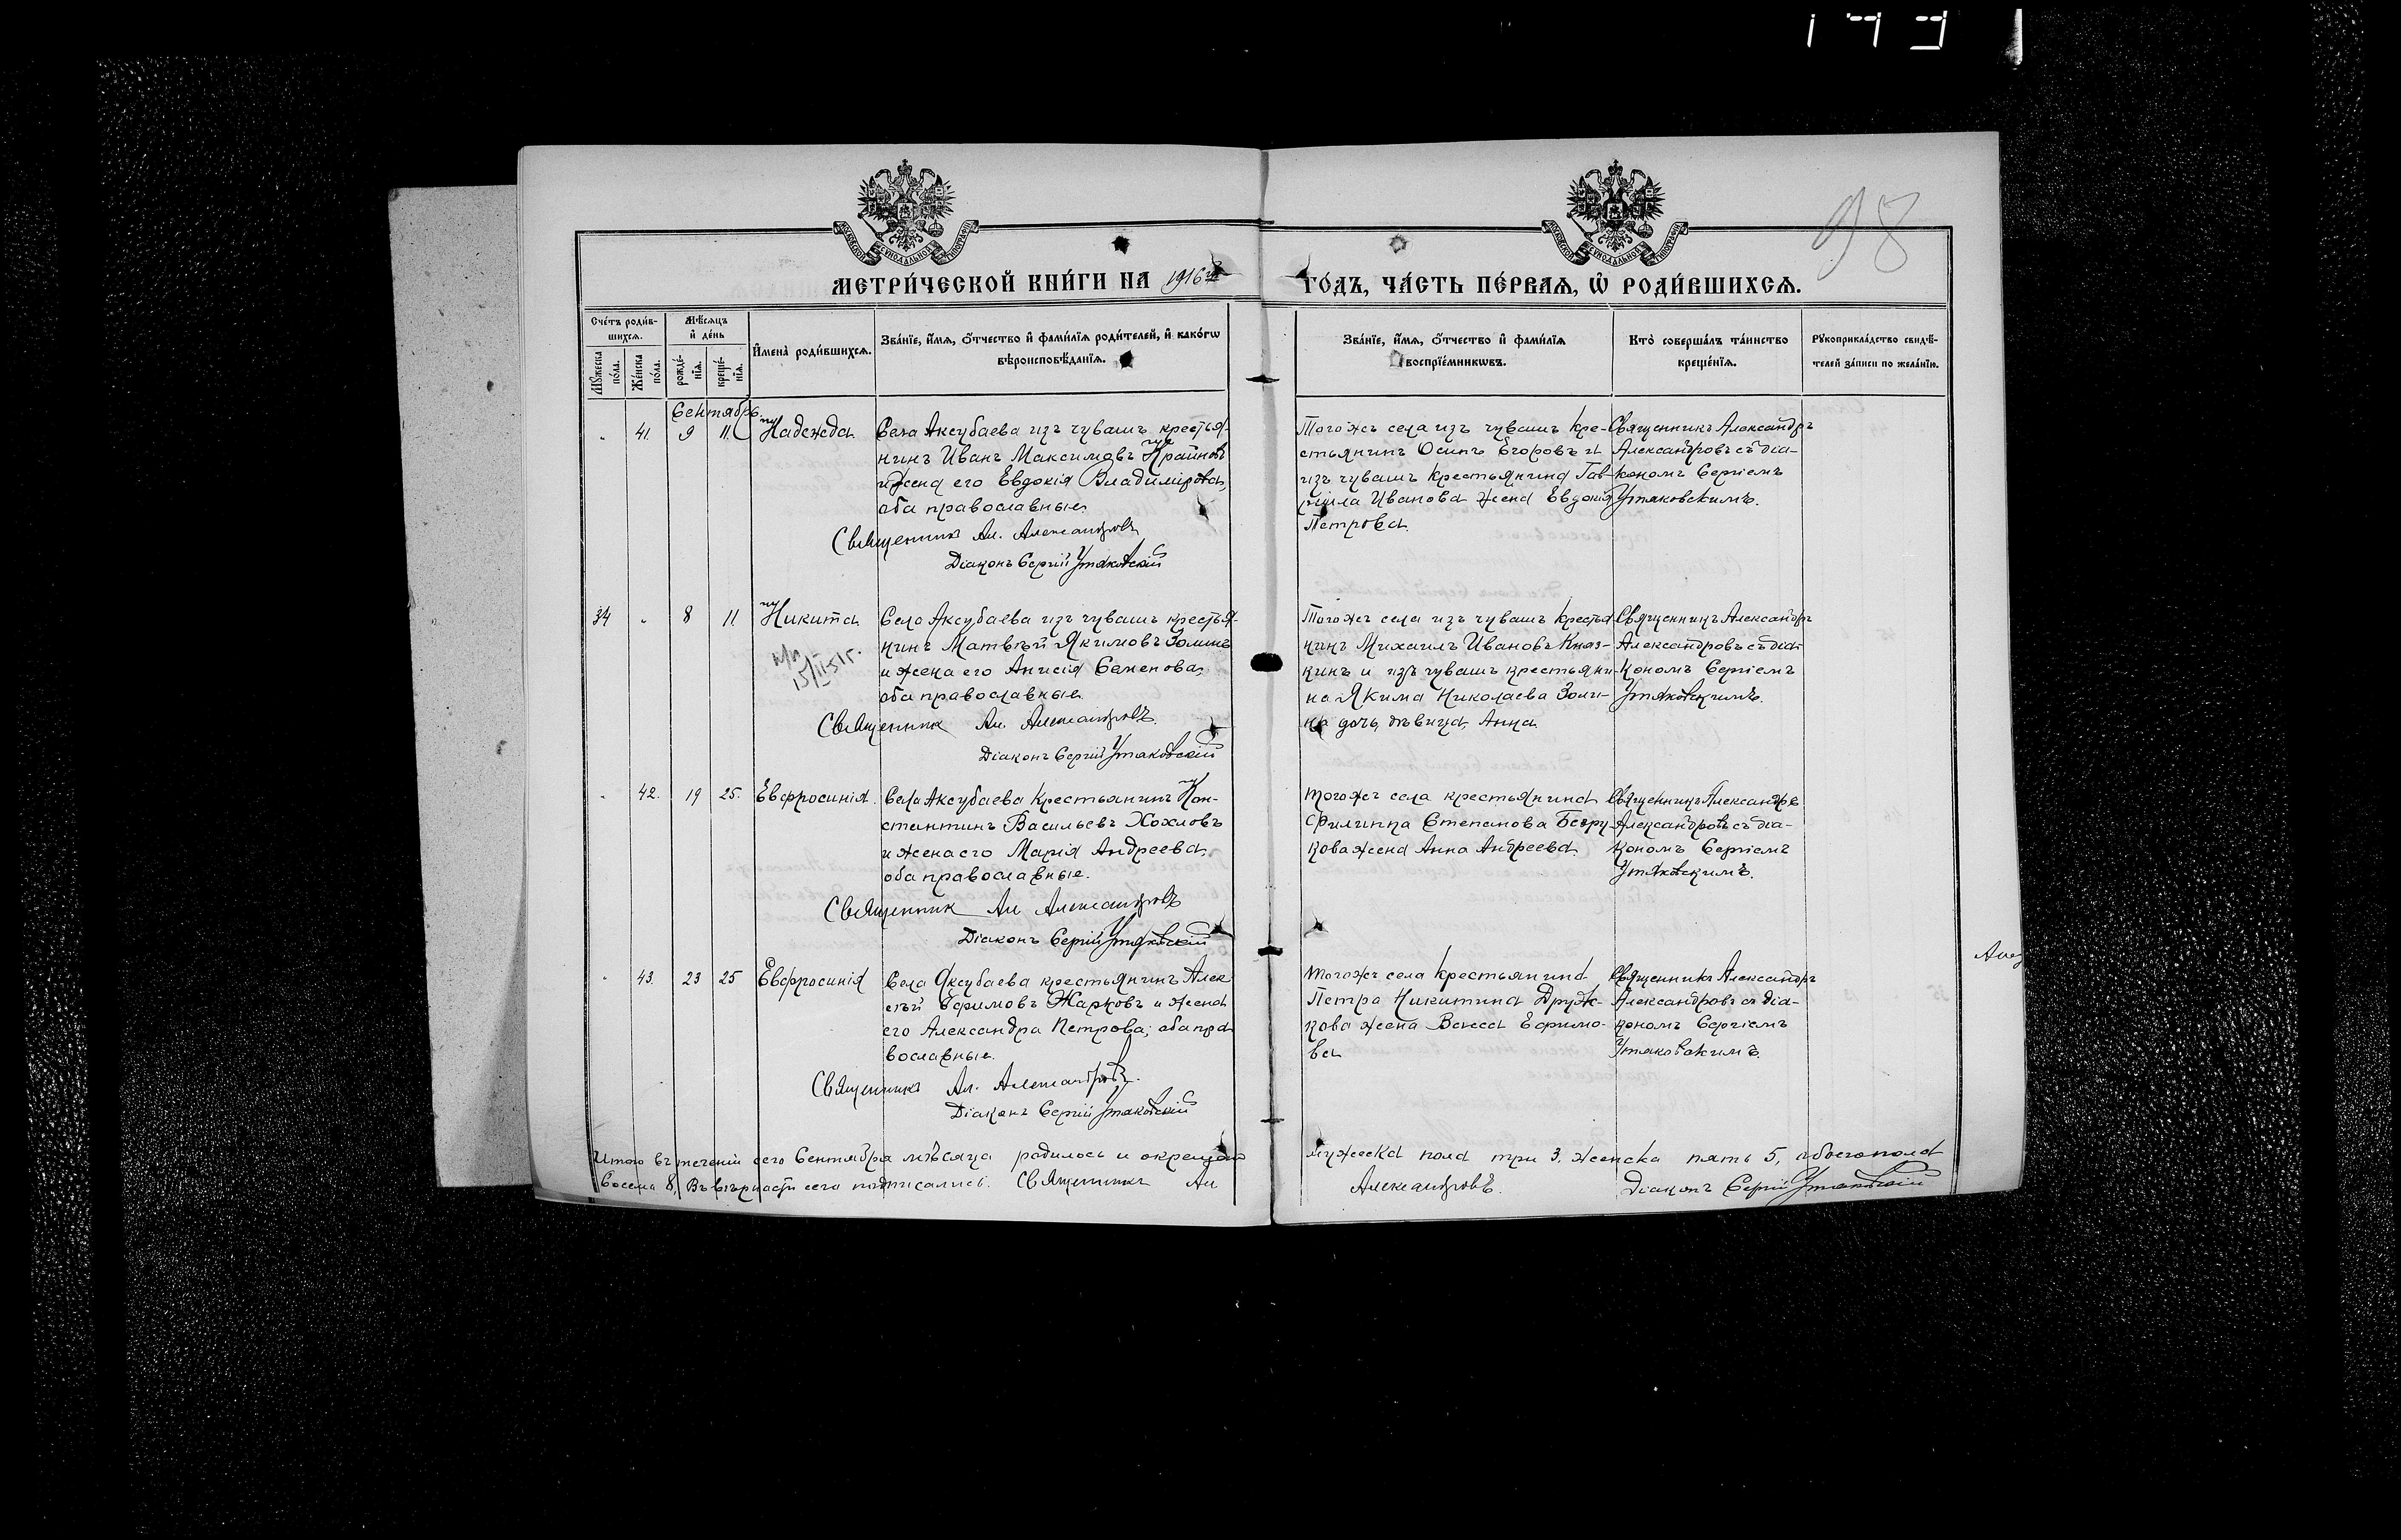 98
МЕТРИ́ЧЕСКОЙ КНИ́ГИ НА 1916 й
ГО́ДЪ, ЧА́СТЬ ПЕ́РВАѦ, Ѡ РОДИ́ВШИХСѦ.
Сче́тъ роди́в-
шихсѧ.
Мѣ́сѧцъ
и҆ де́нь
Мꙋ́жеска
по́ла.
Же́нска
по́ла.
рожде́-
нїѧ.
креще́-
нїѧ.
И҆мена̀ роди́вшихсѧ.
Зва́нїе, и҆́мѧ, ѻ҆́тчество и҆ фами́лїѧ роди́телей, и҆ како́гѡ
вѣроисповѣ́данїѧ.
Зва́нїе, и҆́мѧ, ѻ҆́тчество и҆ фами́лїѧ
воспрїе́мникѡвъ.
Кто̀ соверша́лъ та́инство
креще́нїѧ.
Рꙋкоприкла́дство свидѣ́-
телей за́писи по жела́нїю.
Сентябрь.
" 41. 9 11. Надежда
Села Аксубаева изъ чувашъ крестья-
нинъ Иванъ Максимовъ Крайновъ
и жена его Евдокія Владимірова,
оба православные.
Священникъ Ал. Александровъ
Діаконъ Сергій Утяковскій
Тогожъ села изъ чувашъ кре-
стьянинъ Осипъ Егоровъ и
изъ чувашъ крестьянина Гав-
ріила Иванова жена Евдокія
Петрова.
Священникъ Александръ
Александровъ съ діа-
кономъ Сергіемъ
Утяковскимъ.
34 " 8 11 Никита
15/II-51г.
Села Аксубаева изъ чувашъ крестья-
нинъ Матвѣй Якимовъ Золинъ
и жена его Анисія Семенова,
оба православные.
Священник Ал. Александровъ.
Діаконъ Сергій Утяковскій
Тогожъ села изъ чувашъ крестья
нинъ Михаилъ Ивановъ Княз-
кинъ и изъ чувашъ крестьяни-
на Якима Николаева Золи-
на дочь, дѣвица, Анна.
Священникъ Александръ
Александровъ съ діа-
кономъ Сергіемъ
Утяковскимъ.
" 42. 19 25. Евфросинія.
Села Аксубаева крестьянинъ Кон-
стантинъ Васильевъ Хохловъ
и жена его Марія Андреева,
оба православные.
Священник Ал Александровъ
Діаконъ Сергій Утяковскій
Тогожъ села крестьянина
Филиппа Степанова Багру-
кова жена Анна Андреева.
Священникъ Александръ
Александровъ съ діа-
кономъ Сергіемъ
Утяковскимъ.
" 43. 23 25 Евфросинія
Села Аксубаева крестьянинъ Алек
сѣй Ефимовъ Жарковъ и жена
его Александра Петрова; оба пра
вославные.
Священникъ Ал. Александровъ.
Діаконъ Сергій Утяковскій
Тогожъ села крестьянина
Петра Никитина Друж-
кова жена Васса Ефимо-
ва
Священникъ Александръ
Александровъ съ діа-
кономъ Сергіемъ
Утяковскимъ.
Итого въ теченіи сего Сентября мѣсяца родилось и окрещено
мужеска пола три 3, женска пять 5, обоего пола
восемь 8, Въ вѣрности сего подписались: Священникъ Ал
Александровъ. Діаконъ Сергій Утяковскій